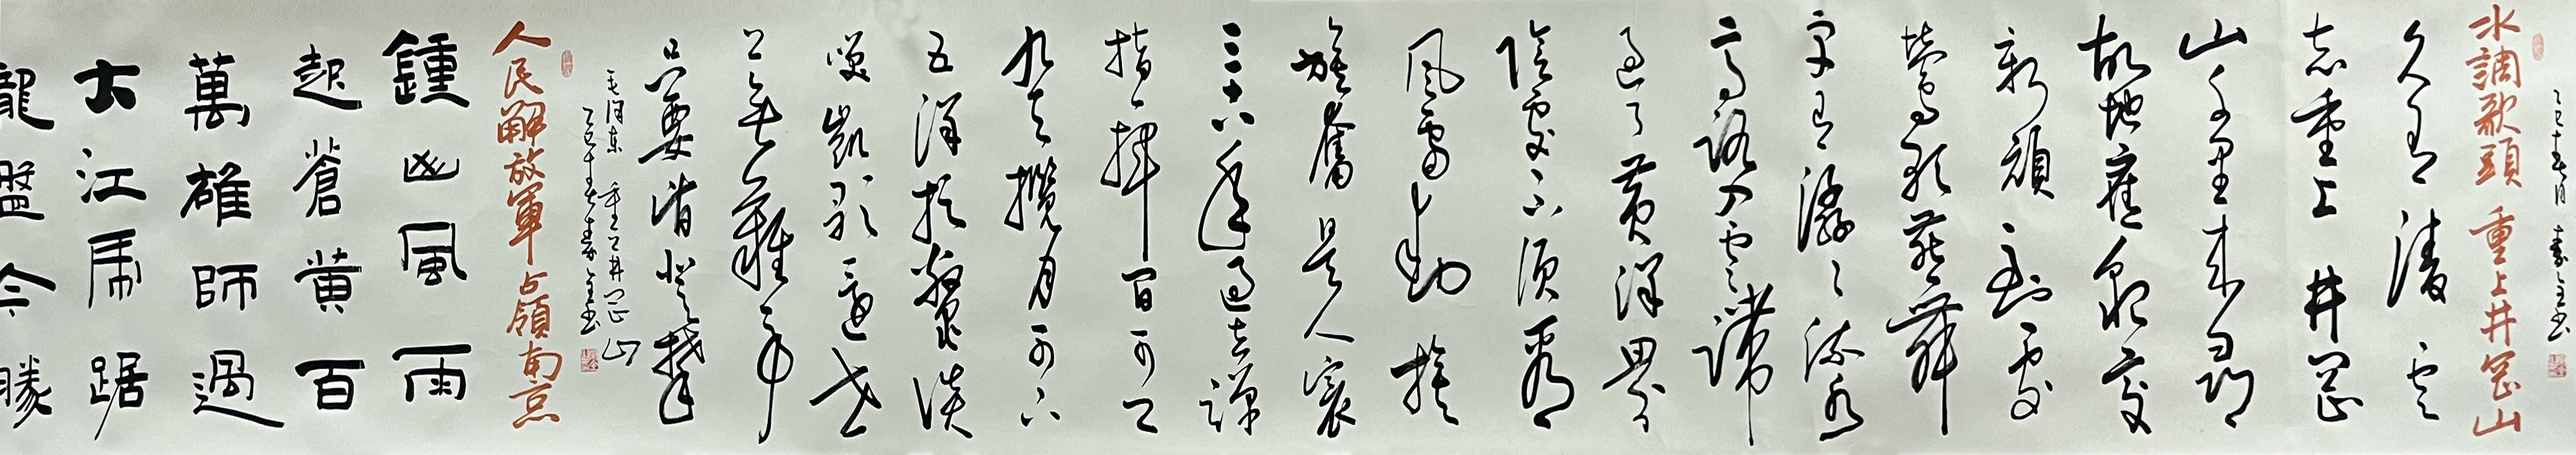 水調歌頭 重上井岡山
久有淩雲
志重上井岡
山千里來尋
故地舊貌變
新顏到處
鶯歌燕舞
更有潺〻流水
高路入雲端
過了黃洋界
險處不須看
風雷動旌
旗奮是人寰
三十八年過去彈
指一揮間可上
九天攬月可下
五洋捉鱉談
笑凱歌還世
上無難事
只要肯登攀
毛澤東 重上井岡山
人民解放軍占領南京
鍾山風雨
起蒼黃百
萬雄師過
大江虎踞
龍盤今勝